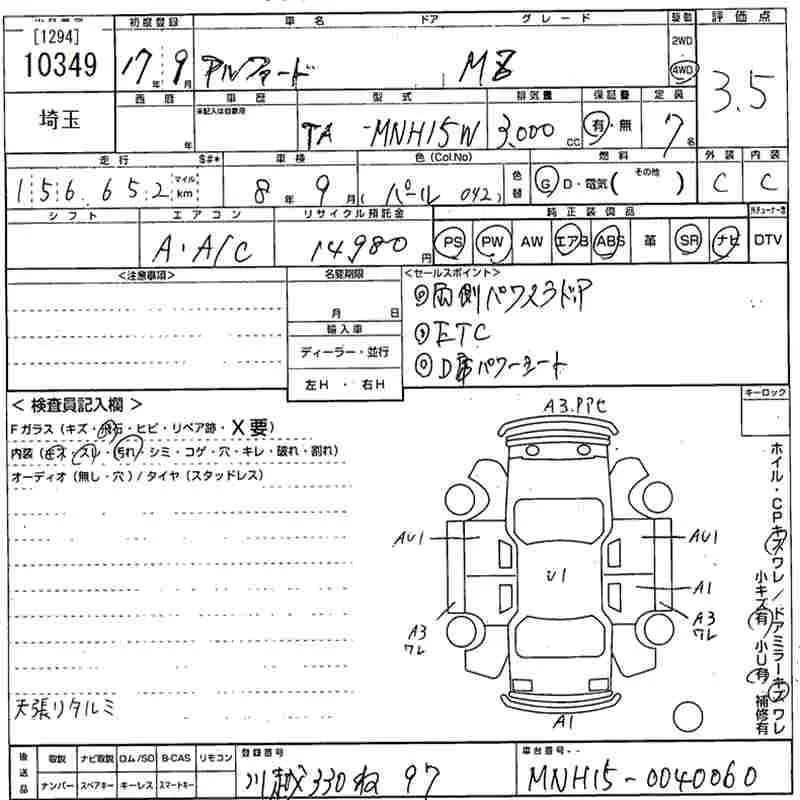 [1294]
10349
埼玉
初度登録 車名 ドア グレード 駆動 評価点
17年9月 アルファード MZ 2WD 4WD 3.5
西暦 年 車歴 型式 排気量 保証書 定員
未記入は自家用 TA-MNH15W 3,000cc 有・無 7名
走行 S#* 車検 色(Col.No) 色替 燃料 外装 内装
156,652 マイル km 8年9月 (パール 042) G D・電気( その他 ) C C
シフト エアコン リサイクル預託金 純正装備品
A・A/C 14980円 PS PW AW エアB ABS 革 SR ナビ DTV
<注意事項> 名変期限 <セールスポイント>
月 日
◎両側パワスラドア
輸入車
◎ETC
ディーラー・並行
◎D席パワーシート
左H・右H
<検査員記入欄>
キーロック
Fガラス(キズ・飛石・ヒビ・リペア跡・X要)
内装(キズ・スレ・汚れ・シミ・コゲ・穴・キレ・破れ・割れ)
オーディオ(無し・穴)/タイヤ(スタッドレス)
A3.PPヒ
AU1 AU1
U1
A1
A3
ワレ
A3
ワレ
A1
ホイル・CPキズワレ/ドアミラーキズワレ
小キズ有 小U有 補修有
天張リタルミ
後送品 取説 ナビ取説 ロム/SD B-CAS リモコン
ナンバー スペアキー キーレス スマートキー
登録番号
川越330ね 97
車台番号
MNH15-0040060